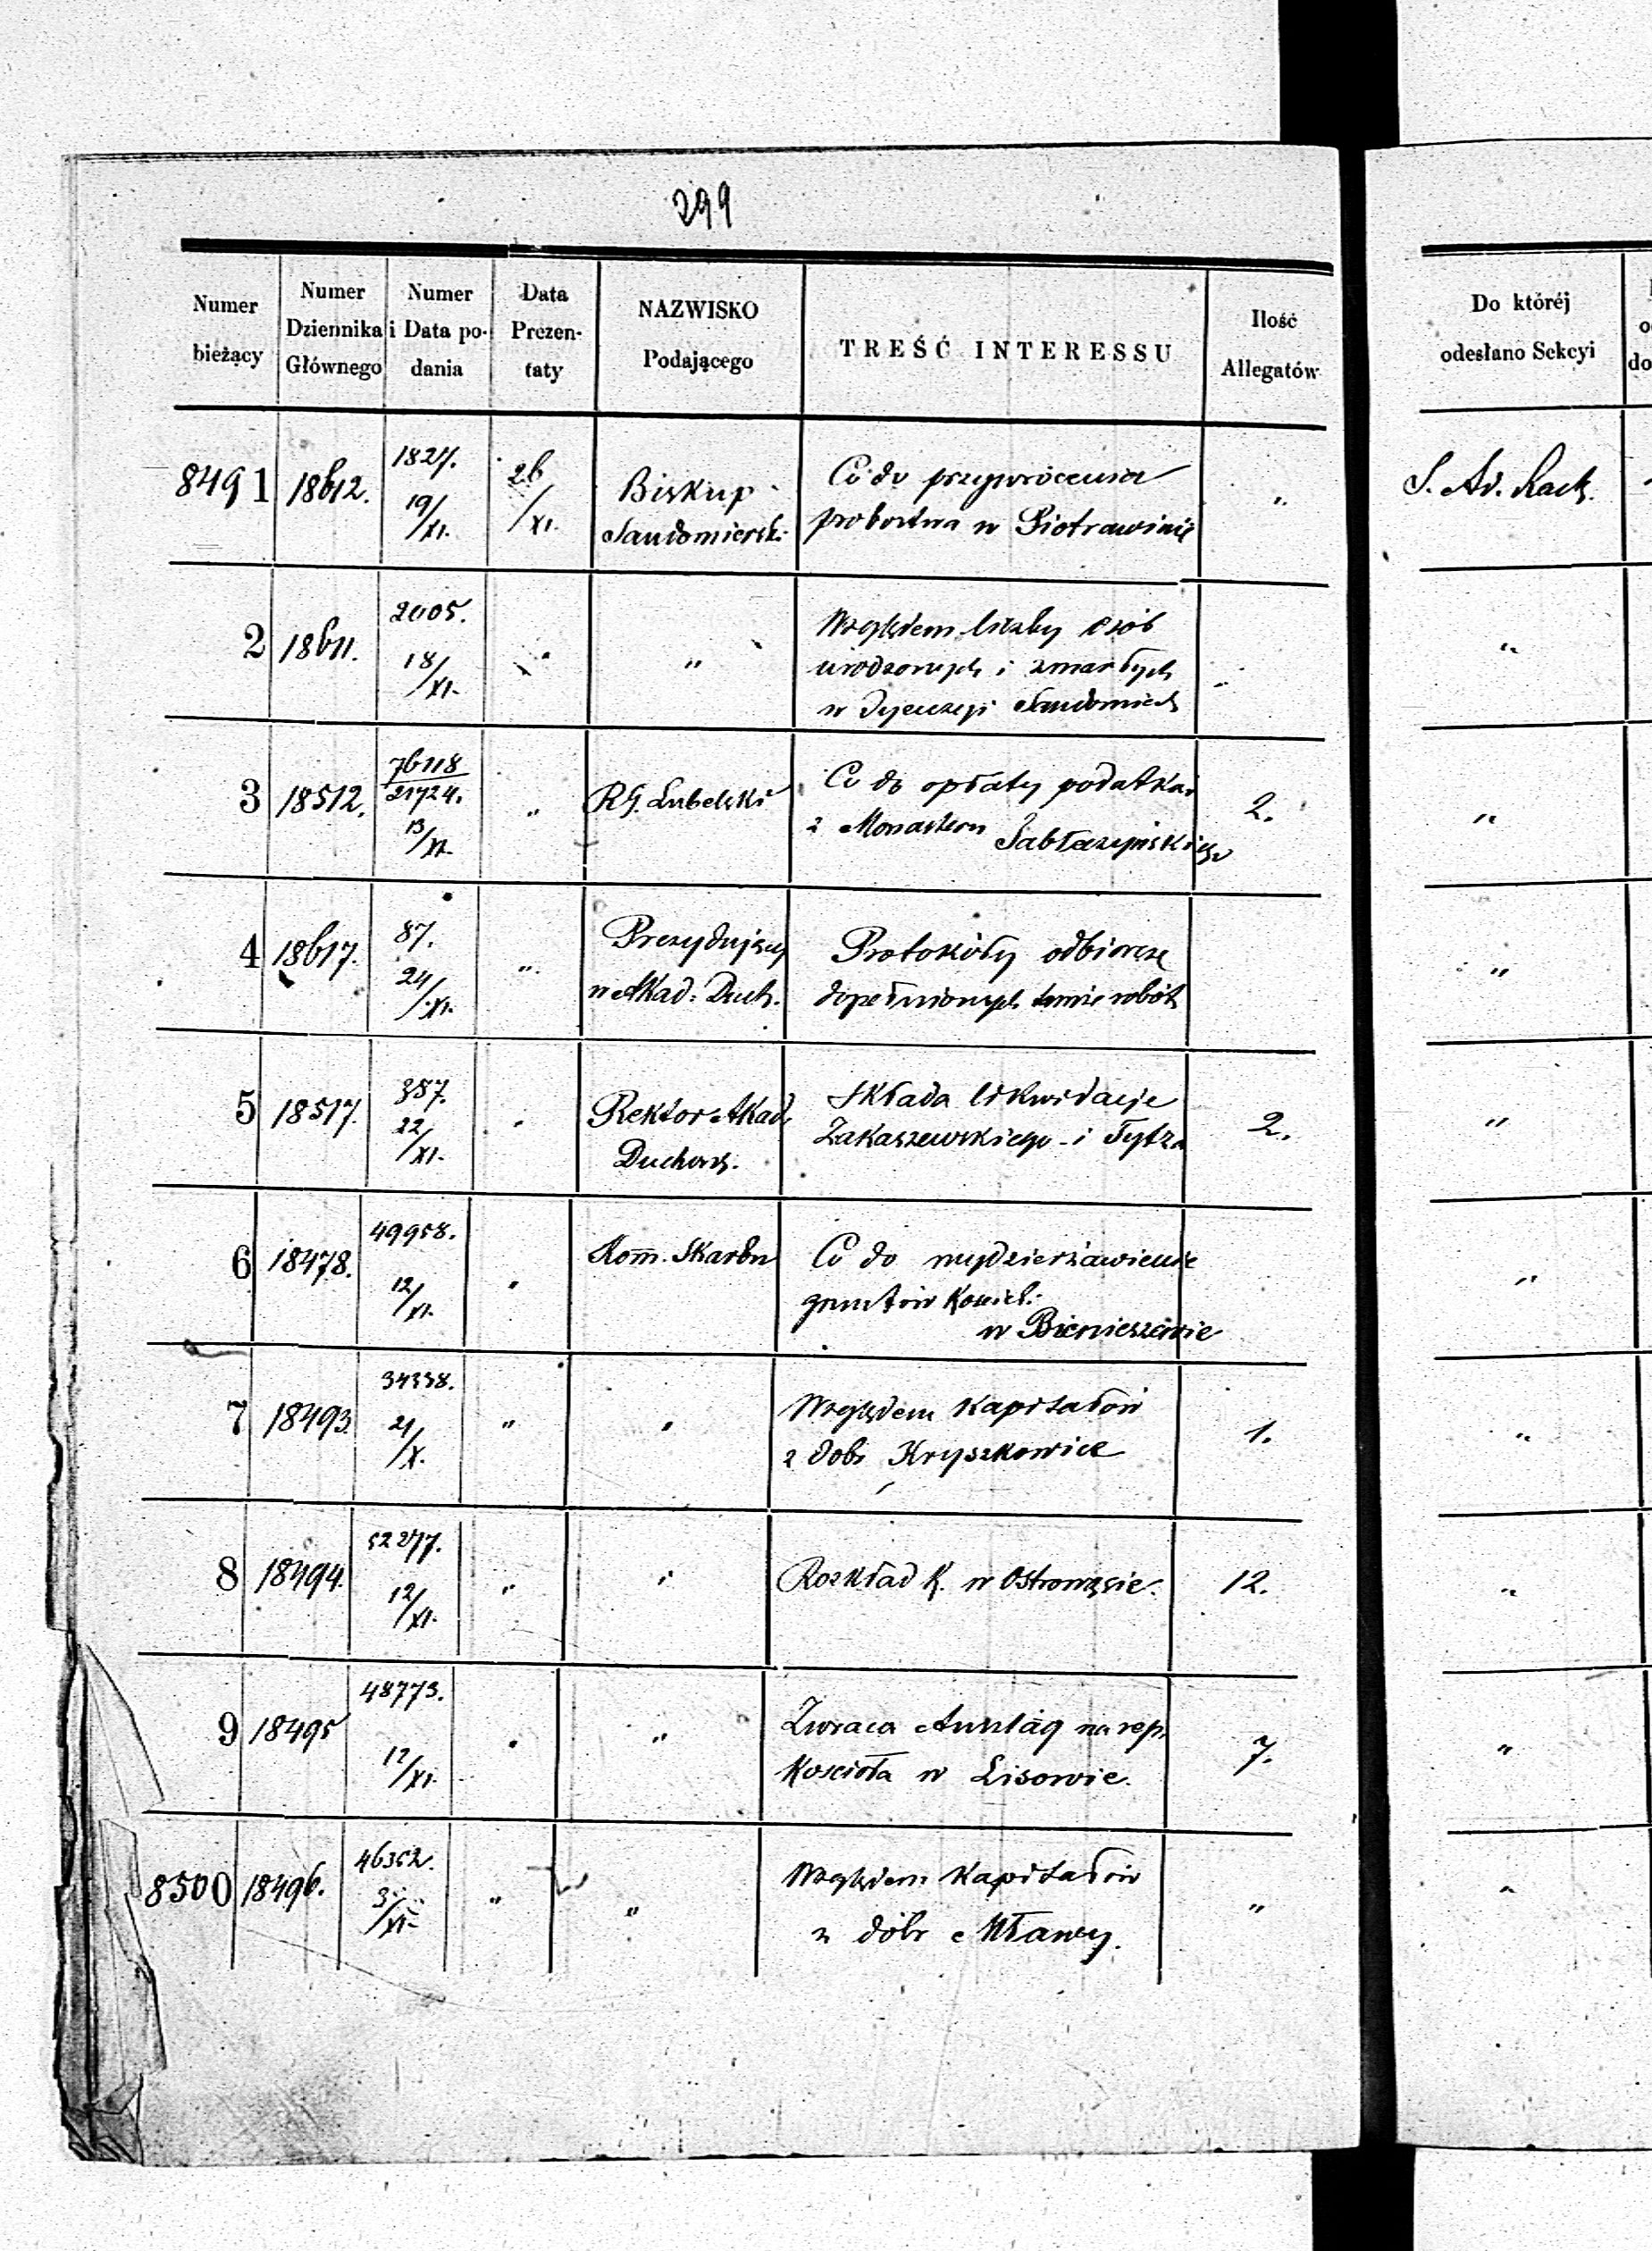 299
Numer bieżący
Numer Dziennika Głównego
Numer i Data podania
Data Prezentaty
NAZWISKO Podającego
TREŚĆ INTERESSU
Ilość Allegatów
Do któréj odesłano Sekcyi
8491 18612. 1827. 19/XI. 26/XI. Biskup Co do przywrócenia " S. Ad. Rach.
Sandomiersk: probostwa w Piotrawinie
2 18611. 2005. 18/XI. " " Względem liczby osób " "
urodzonych i zmarłych
w Dyecezyi Sandomiersk
3 18512. 76118/21724. 13/XI. " R.G. Lubelski Co do opłaty podatków 2. "
z Monasteru Jabłeczyńskiego
4 18617. 87. 24/XI. " Prezydujący Protokóły odbiorcze "
w Akad: Duch. dopełnionych tamże robót
5 18517. 357. 22/XI. " Rektor Akad. Składa likwidacje 2. "
Duchow. Zakaszewskiego i
6 18478. 49958. 12/XI. " Kom. Skarbu Co do wydzierżawienie "
gruntów Kościel:
w Bieniszewie
7 18493. 34338. 21/X. " " Względem Kapitałów 1. "
z dobr Kryszkowice
8 18494. 52277. 12/XI. " " Rozkład K. w Ostrowąsie. 12. "
9 18495 48773. 12/XI. " " Zwraca Anszlag na rep. 7. "
Kościoła w Lisowie.
8500 18496. 46352. 3/XI. " " Względem Kapitałów " "
z dóbr Mławy.